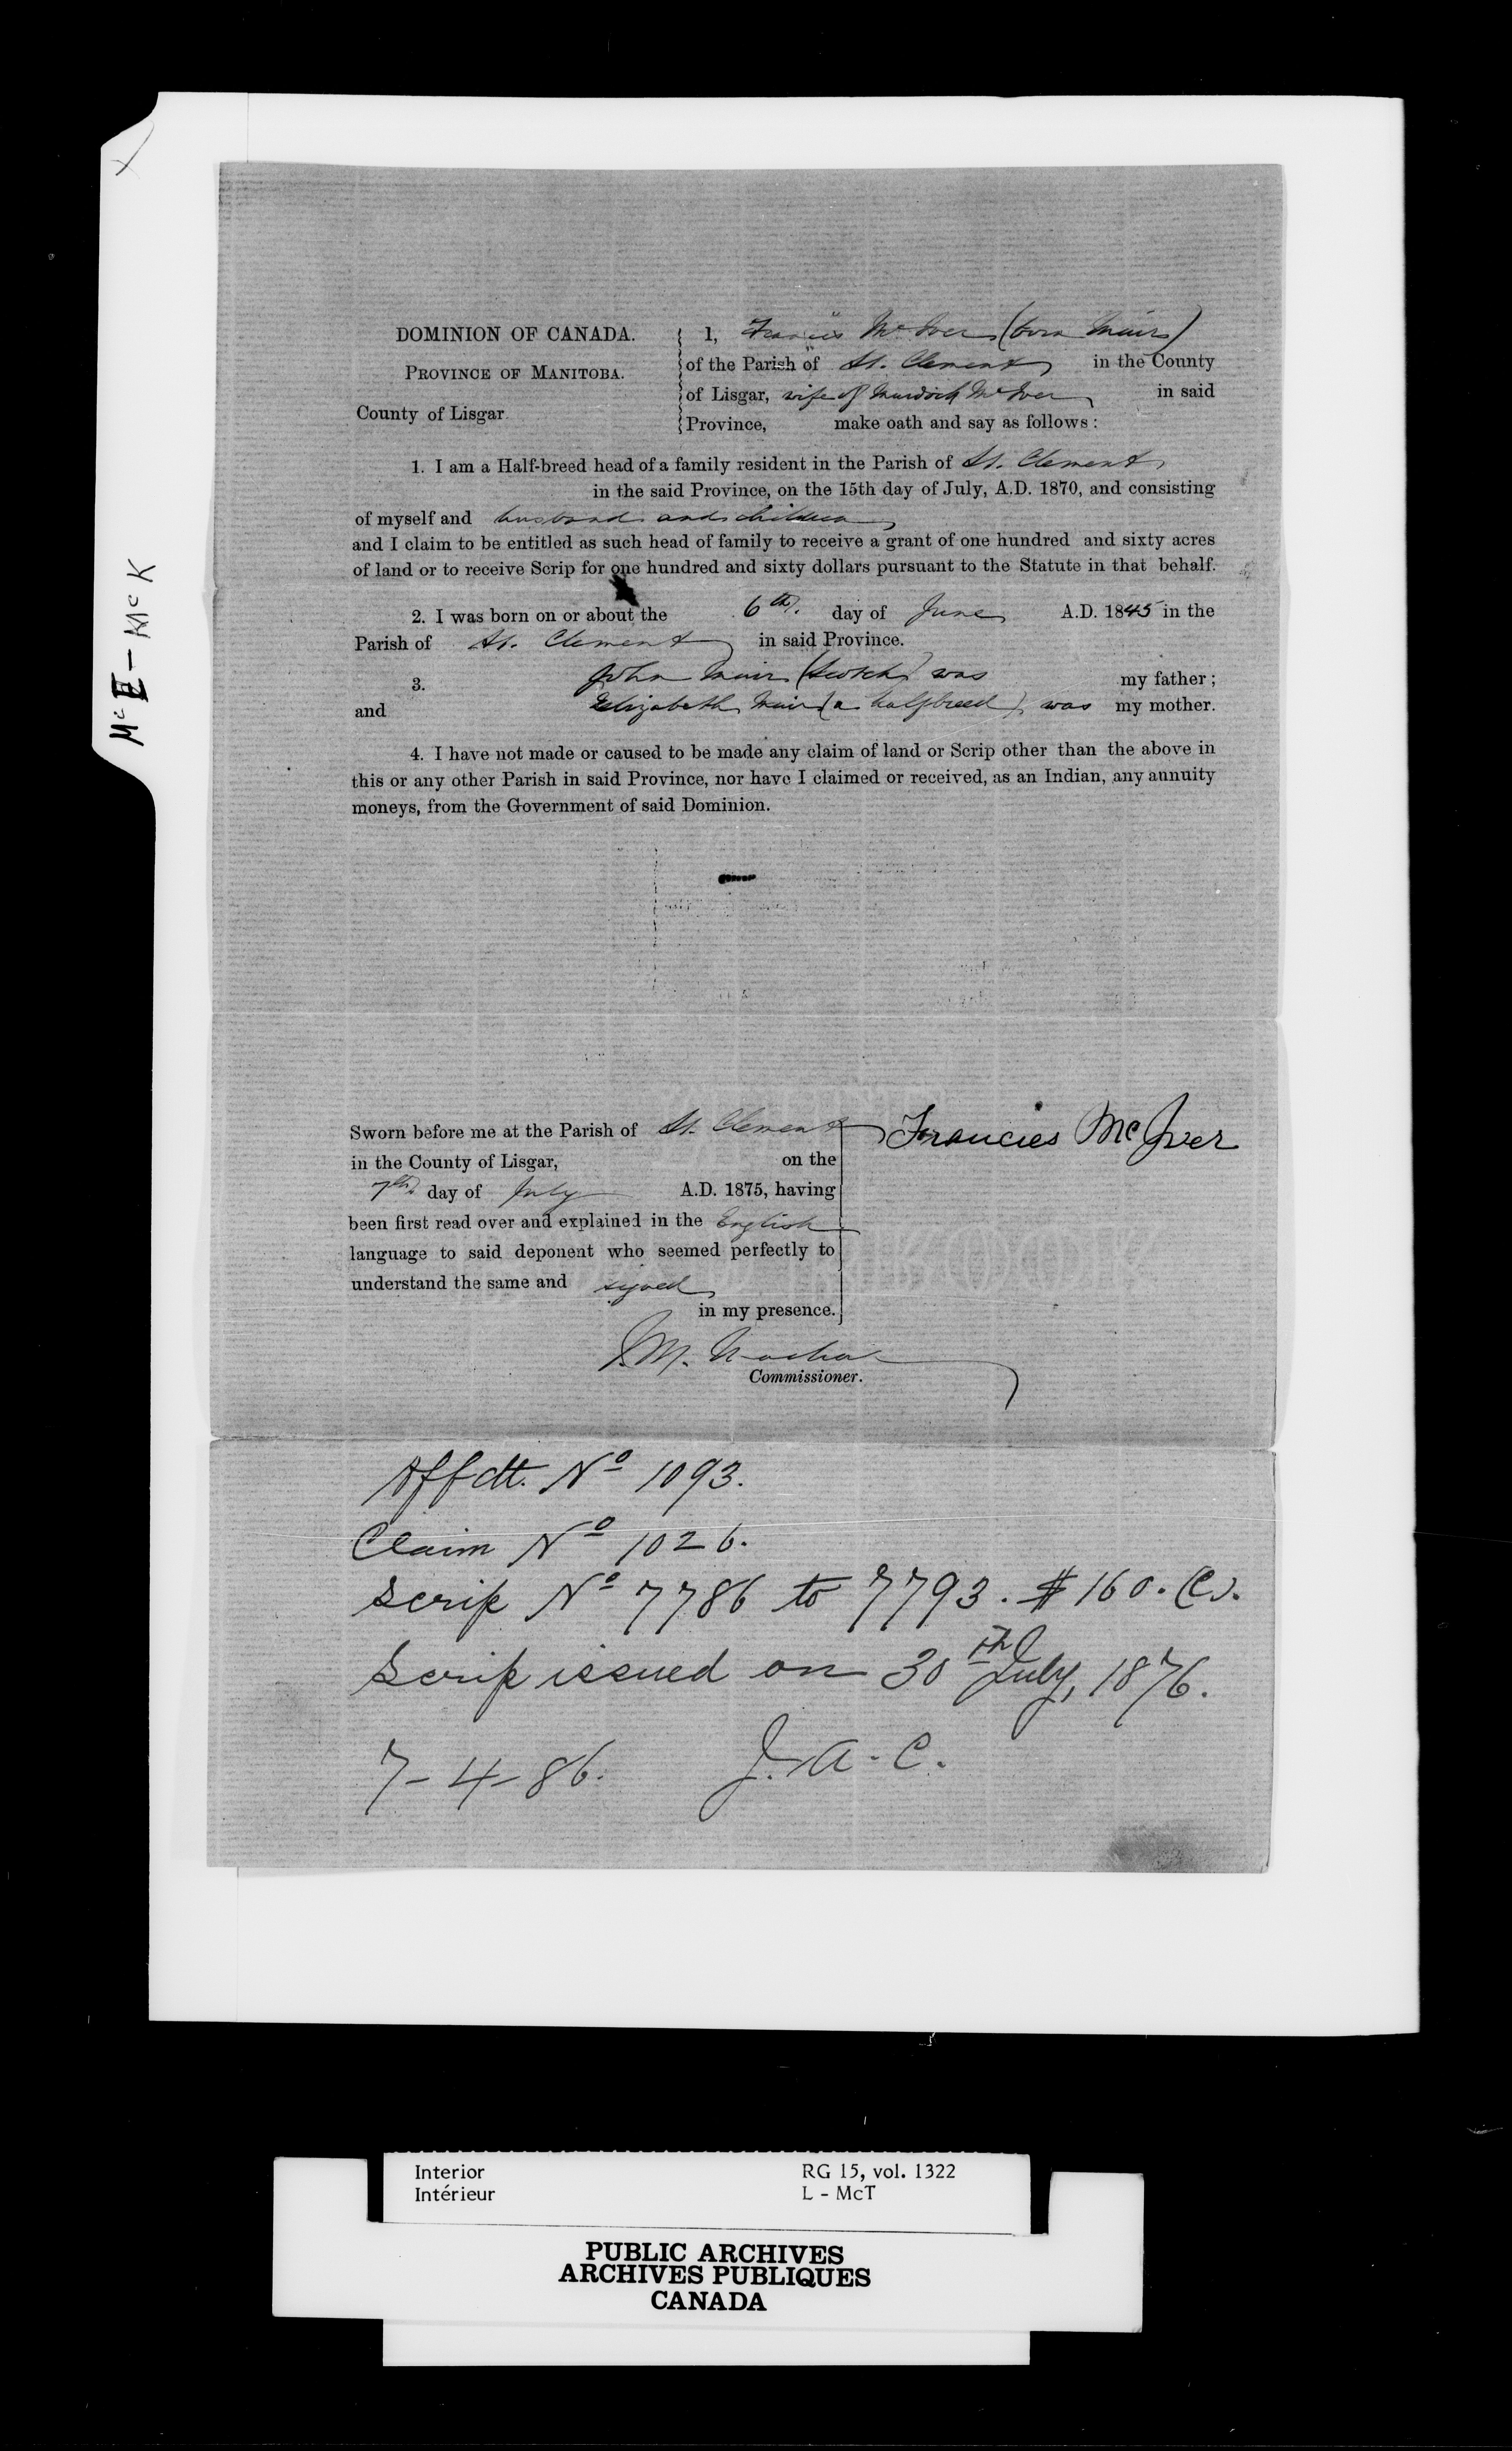 McE - McK
DOMINION OF CANADA.
PROVINCE OF MANITOBA.
County of Lisgar.
1, Francies McIver (born Muir)
of the Parish of St. Clement in the County
of Lisgar, wife of Murdoch McIver in said
Province, make oath and say as follows:
1. I am a Half-breed head of a family resident in the Parish of St. Clement
in the said Province, on the 15th day of July, A.D. 1870, and consisting
of myself and husband and children
and I claim to be entitled as such head of family to receive a grant of one hundred and sixty acres
of land or to receive Scrip for one hundred and sixty dollars pursuant to the Statute in that behalf.
2. I was born on or about the 6th. day of June A.D. 1845 in the
Parish of St. Clement in said Province.
3. John Muir (Scotch) was my father;
and Elizabeth Muir (a halfbreed) was my mother.
4. I have not made or caused to be made any claim of land or Scrip other than the above in
this or any other Parish in said Province, nor have I claimed or received, as an Indian, any annuity
moneys, from the Government of said Dominion.
Sworn before me at the Parish of St. Clement
in the County of Lisgar, on the
7th day of July A.D. 1875, having
been first read over and explained in the English
language to said deponent who seemed perfectly to
understand the same and signed
in my presence.
Francies McIver
J. M. Machar
Commissioner.
Affdt. No 1093.
Claim No 1026.
Scrip No 7786 to 7793. $160. (C).
Scrip issued on 30th July, 1876.
7-4-86. J. A. C.
Interior RG 15, vol. 1322
Intérieur L - McT
PUBLIC ARCHIVES
ARCHIVES PUBLIQUES
CANADA